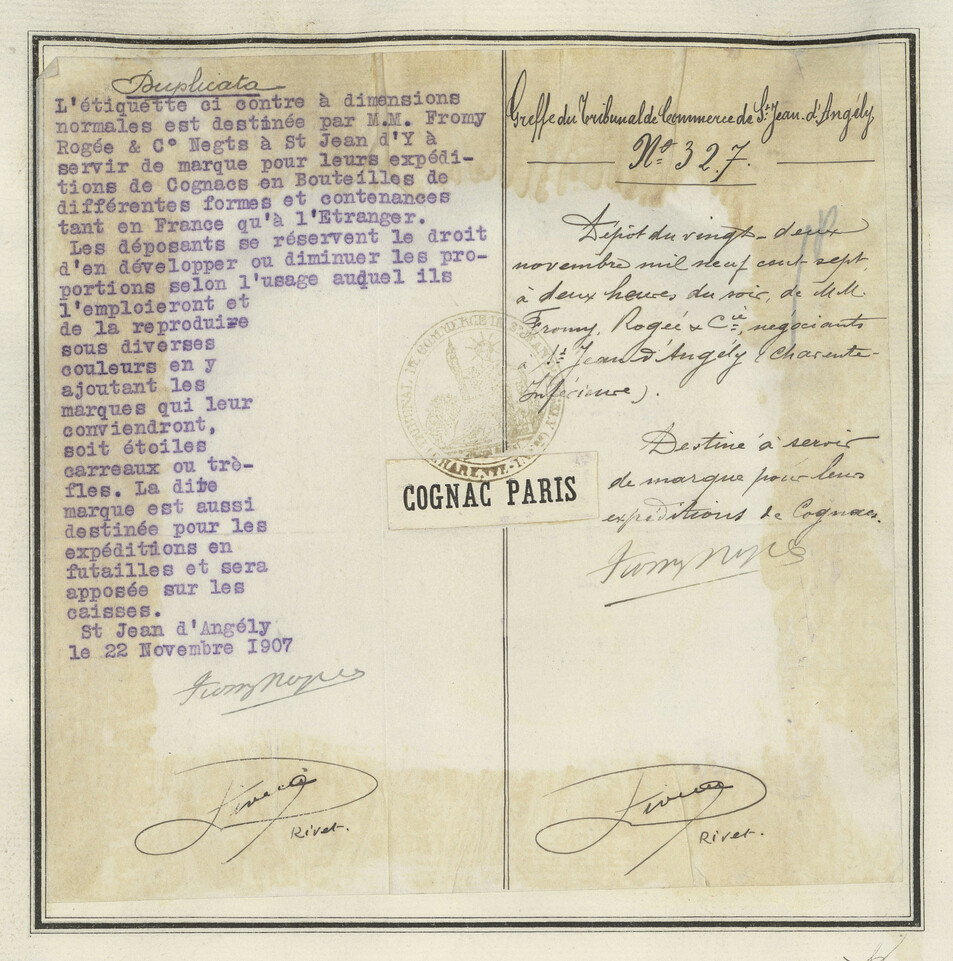 Duplicata
L'étiquette ci contre à dimensions
normales est destinée par M.M. Fromy
Rogée & C° Negts à St Jean d'Y à
servir de marque pour leurs expédi-
tions de Cognacs en Bouteilles de
différentes formes et contenances
tant en France qu'à l'Etranger.
Les déposants se réservent le droit
d'en développer ou diminuer les pro-
portions selon l'usage auquel ils
l'emploieront et
de la reproduire
sous diverses
couleurs en y
ajoutant les
marques qui leur
conviendront,
soit étoiles
carreaux ou trè-
fles. La dite
marque est aussi
destinée pour les
expéditions en
futailles et sera
apposée sur les
caisses.
St Jean d'Angély
le 22 Novembre 1907
Rivet.
TRIBUNAL DE COMMERCE DE ST JEAN D'ANGELY
CHARENTE-INF
COGNAC PARIS
Greffe du Tribunal de Commerce de St Jean d'Angély
No 327.
Dépôt du vingt-deux
novembre mil neuf cent sept
à deux heures du soir, de M.M.
Fromy, Rogée & Cie, négociants
à St Jean d'Angély (Charente-
Inférieure).
Destiné à servir
de marque pour leurs
expéditions de Cognacs.
Fromy Rogée
Rivet.